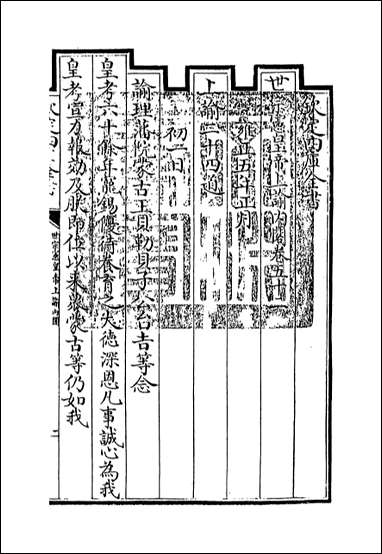 欽定四庫全書
世宗憲皇帝上諭內閣卷五十二
雍正五年正月
上諭二十四道
初二日
諭理藩院蒙古王貝勒貝子公台吉等念
皇考六十餘年寵錫優待養育之大德深恩凡事誠心為我
皇考宣力報効及朕即位以來衆蒙古等仍如我